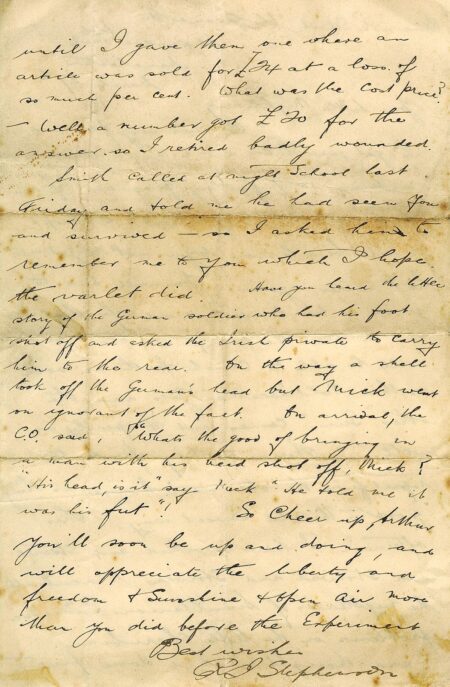 until I gave them one where an
article was sold for £24 at a loss of
so much per cent. What was the Cost price?
— Well a number got £20 for the
answer. so I retired badly wounded.
Smith called at night School last
Friday and told me he had seen you
and survived — so I asked him to
remember me to you which I hope
the varlet did. Have you heard the little
story of the German soldier who had his foot
shot off and asked the Irish private to carry
him to the rear. On the way a shell
took off the German's head but Mick went
on ignorant of the fact. On arrival, the
C.O. said, "Whats the good of bringing in
a man with his head shot off, Mick?
"His head, is it" say Mick "He told me it
was his fut"! So Cheer up, Arthur
you'll soon be up and doing, and
will appreciate the liberty and
freedom & Sunshine & open Air more
than you did before the Experiment
Best wishes
R J Stephenson